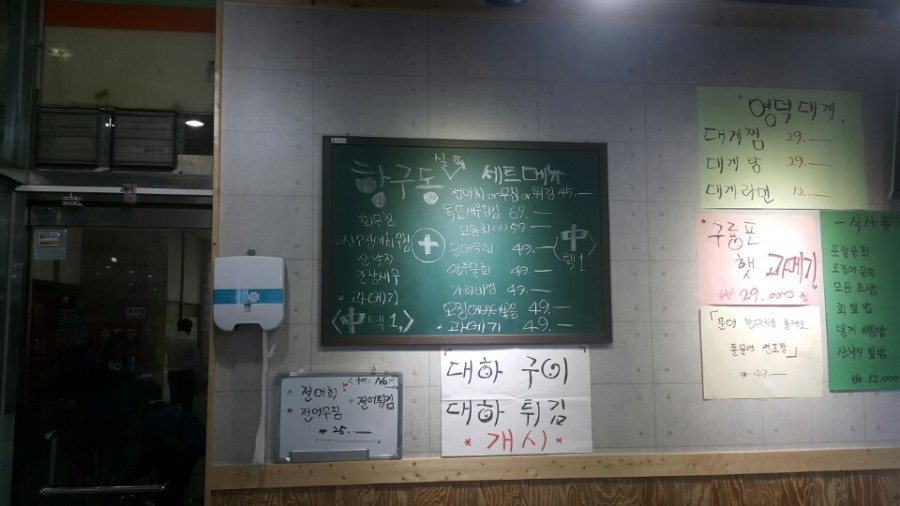 항구동 실속 세트메뉴
전어회 or 무침 or 튀김 45.—
독도새우튀김 69.—
모듬회 (小) 59.—
49.—
49.—
가리비찜 49.—
49.—
* 과메기 49.—
회무침
산낙지
간장새우
* 과메기
<中 택 1>
+
<中 택1>
전어회
전어무침
전어튀김
₩ 25.—
대하 구이
대하 튀김
* 개시 *
영덕대게
대게찜 29.—
대게탕 29.—
대게라면 12.—
* 구룡포
햇 과메기
₩ 29.000
「문어 한마리를 통째로
돌문어 연포탕」
₩ 49.—
- 식사류
포항물회
오징어 물회
모듬 초밥
회덮밥
멍게 비빔밥
산낙지 덮밥
₩ 12.000